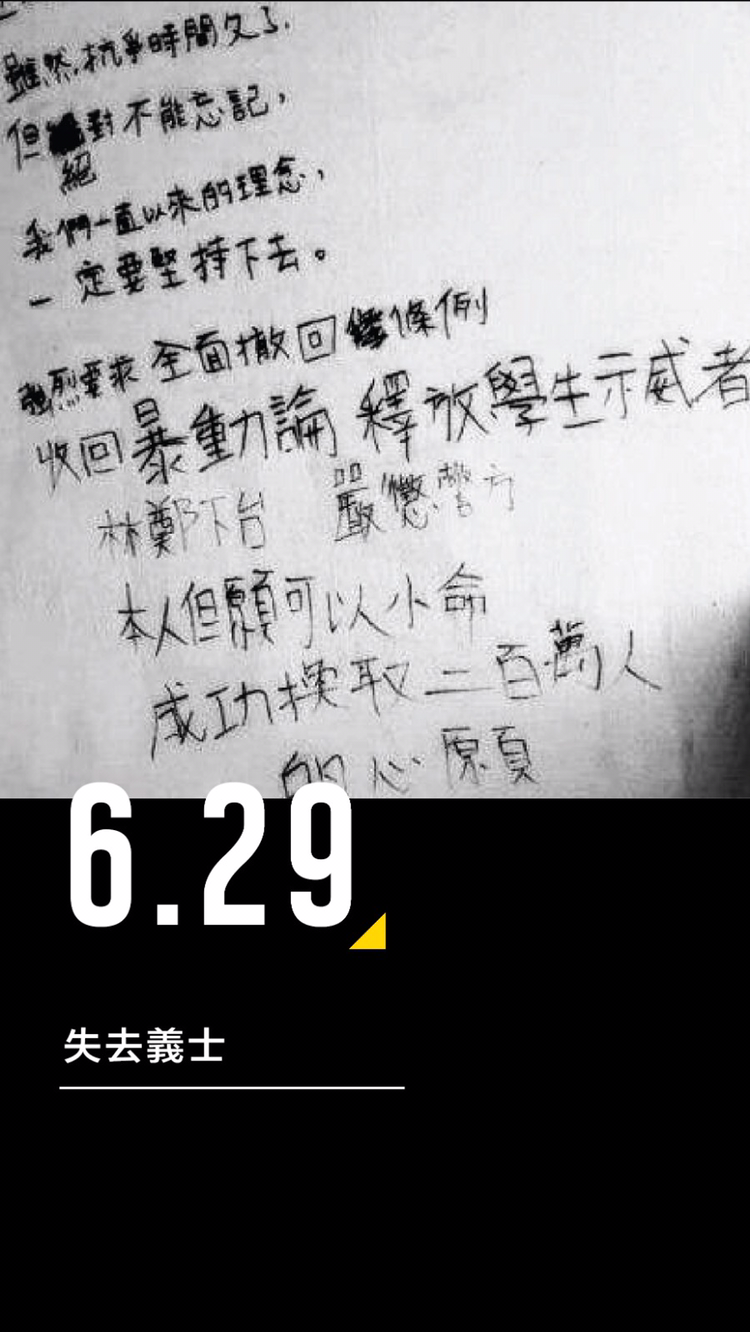 雖然抗爭時間久了,
但絕對不能忘記,
我們一直以來的理念,
一定要堅持下去。
強烈要求 全面撤回條例
收回暴動論 釋放學生示威者
林鄭下台 嚴懲警方
本人但願可以小命
成功換取二百萬人
的心願
6.29
失去義士